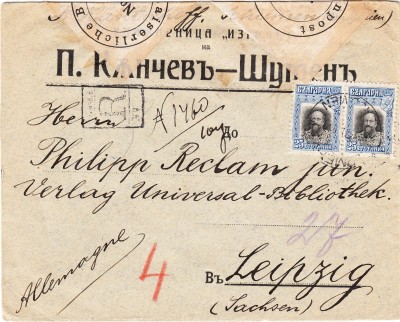 Kaiserliche
...ЕНИЦА „ИЗ
на
П. Клянчевъ—Шуменъ
R
Herrn
№ 1460
До
Philipp Reclam jun.
Verlag Universal-Bibliothek.
БЪЛГАРИЯ БЪЛГАРИЯ
25 СТОТИНКИ 25 СТОТИНКИ
27
Allemagne
4
Въ Leipzig
(Sachsen)